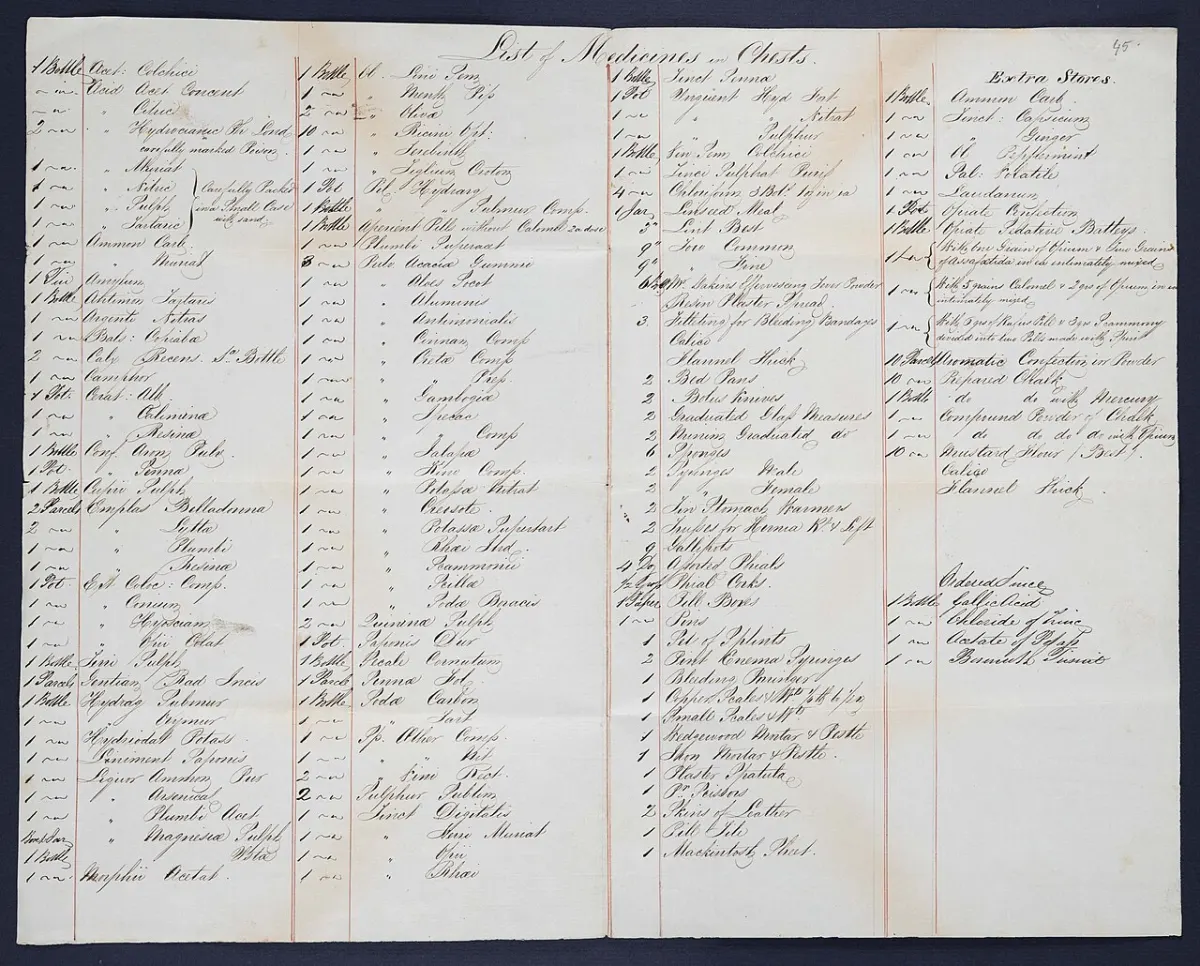 45.
List of Medicines in Chests.
1 Bottle Acet: Colchici
Acid Acet Concent
" Citric
2 " Hydrocianic Ph Lond
carefully marked Poison.
1 " Muriat
1 " Nitric
1 " Sulph
1 " Tartaric
Carefully Packed
in a Small Case
with sand.
1 Ammon Carb.
1 " Muriat
1 Tin Amylum
1 Bottle Antimon Tartaris
1 Argenti Nitras
1 Bals: Copaibæ
2 Calx Recens. Bottle
1 Camphor
1 Pot: Cerat: Alb
1 " Calimina
1 " Resinæ
1 Bottle Conf. Arom Pulv.
1 Pot " Senna
1 Bottle Cuprii Sulph
2 Parcels Emplas Belladonna
2 " Lyttæ
1 " Plumbi
1 " Resinæ
1 Pot Ext Coloc: Comp.
1 " Conium
1 " Hyosciam
1 " Opii Colat
1 Bottle Ferri Sulph
1 Parcels Gentian Rad Incis
1 Bottle Hydrag Submur
1 " Oxymur
1 Hydriodat Potass
1 Liniment Saponis
1 Liquor Ammon Pur
1 " Arsenical
1 " Plumbi Acet
" Magnesiæ Sulph
1 Bottle " Usta
1 Morphii Acetat.
1 Bottle Ol. Lini Sem
1 " Menth Pip
2 " Oliva
10 " Ricini Opt:
1 " Terebinth
1 " Tiglium Croton
1 Pot Pil. Hydrarg
1 Bottle " " Submur Comp.
1 Bottle Aperient Pills without Calomel 20 dose
1 Plumbi Superacet
3 Pulv Acacia Gummi
1 " Aloes Socot
1 " Aluminis
1 " Antimonialis
1 " Cinnam Comp
1 " Creta Comp
1 " " Prep.
1 " Gambogiæ
1 " Ipecac
1 " " Comp
1 " Jalapæ
1 " Kino Comp.
1 " Potassa Nitrat
1 " Creosote.
1 " Potassæ Supertart
1 " Rhæi Ind.
1 " Scammonii
1 " Scillæ
1 " Soda Boracis
2 Quinina Sulph
1 Pot. Saponis Dur
1 Bottle Secale Cornutum
1 Parcel Senna Fol.
1 Bottle Soda Carbon
1 " Tart
1 Sp. Æther Comp.
1 " " Nit
2 " Vini Rect.
2 Sulphur Sublim
1 Tinct Digitalis
1 " Ferri Muriat
1 " Opii
1 " Rhæi
1 Bottle Tinct Senna
1 Pot Unguent Hyd Fort
1 " " Nitrat
1 " Sulphur
1 Bottle Vin Sem Colchici
1 Zinci Sulphat Purif
4 Chloroform
1 Jar Linseed Meal
3" Lint Best
9" Tow Common
9" " Fine
Dakins Effervescing Powder
Resin Plaster Spread
3. Filleting for Bleeding Bandages
Calico
Flannel Thick
2 Bed Pans
2 Bolus Knives
2 Graduated Glass Measures
2 Minim Graduated do
6 Sponges
2 Syringes Male
2 " Female
2 Tin Stomach Warmers
2 Trusses for Hernia Rt & Left
9 Gallipots
4 Doz Assorted Phials
Phial Corks.
1 Paper Pill Boxes
1 Pins
1 Set of Splints
2 Pint Enema Syringes
1 Bleeding Porringer
1 Copper Scales & Wts
1 Small Scales & Wts
1 Wedgewood Mortar & Pestle
1 Iron Mortar & Pestle.
1 Plaster Spatula
1 Pr Scissors
2 Skins of Leather
1 Pill Tile
1 Mackintosh Sheet.
Extra Stores.
1 Bottle Ammon Carb.
1 Tinct: Capsicum
1 " Ginger
1 Ol Peppermint
1 Sal: Volatile
1 Laudanum
1 Pot Opiate Confection
1 Bottle Opiate Sedative Battleys
1 With One Grain of Opium & Five Grains
of Assafœtida in ea intimately mixed
1 With 3 grains Calomel & 2 grs of Opium in ea
intimately mixed
1 With 5 grs of Rufus Pill & 3 grs Scammony
divided into two Pills made with Spirit
10 Parcel Aromatic Confection in Powder
10 Prepared Chalk
1 Bottle do do with Mercury
1 Compound Powder of Chalk
1 do do do do with Opium
10 Mustard Flour / Best /.
Calico
Flannel Thick.
Ordered Since
1 Bottle Gallic Acid
1 Chloride of Zinc
1 Acetate of Potass
1 Bismuth Trisnit